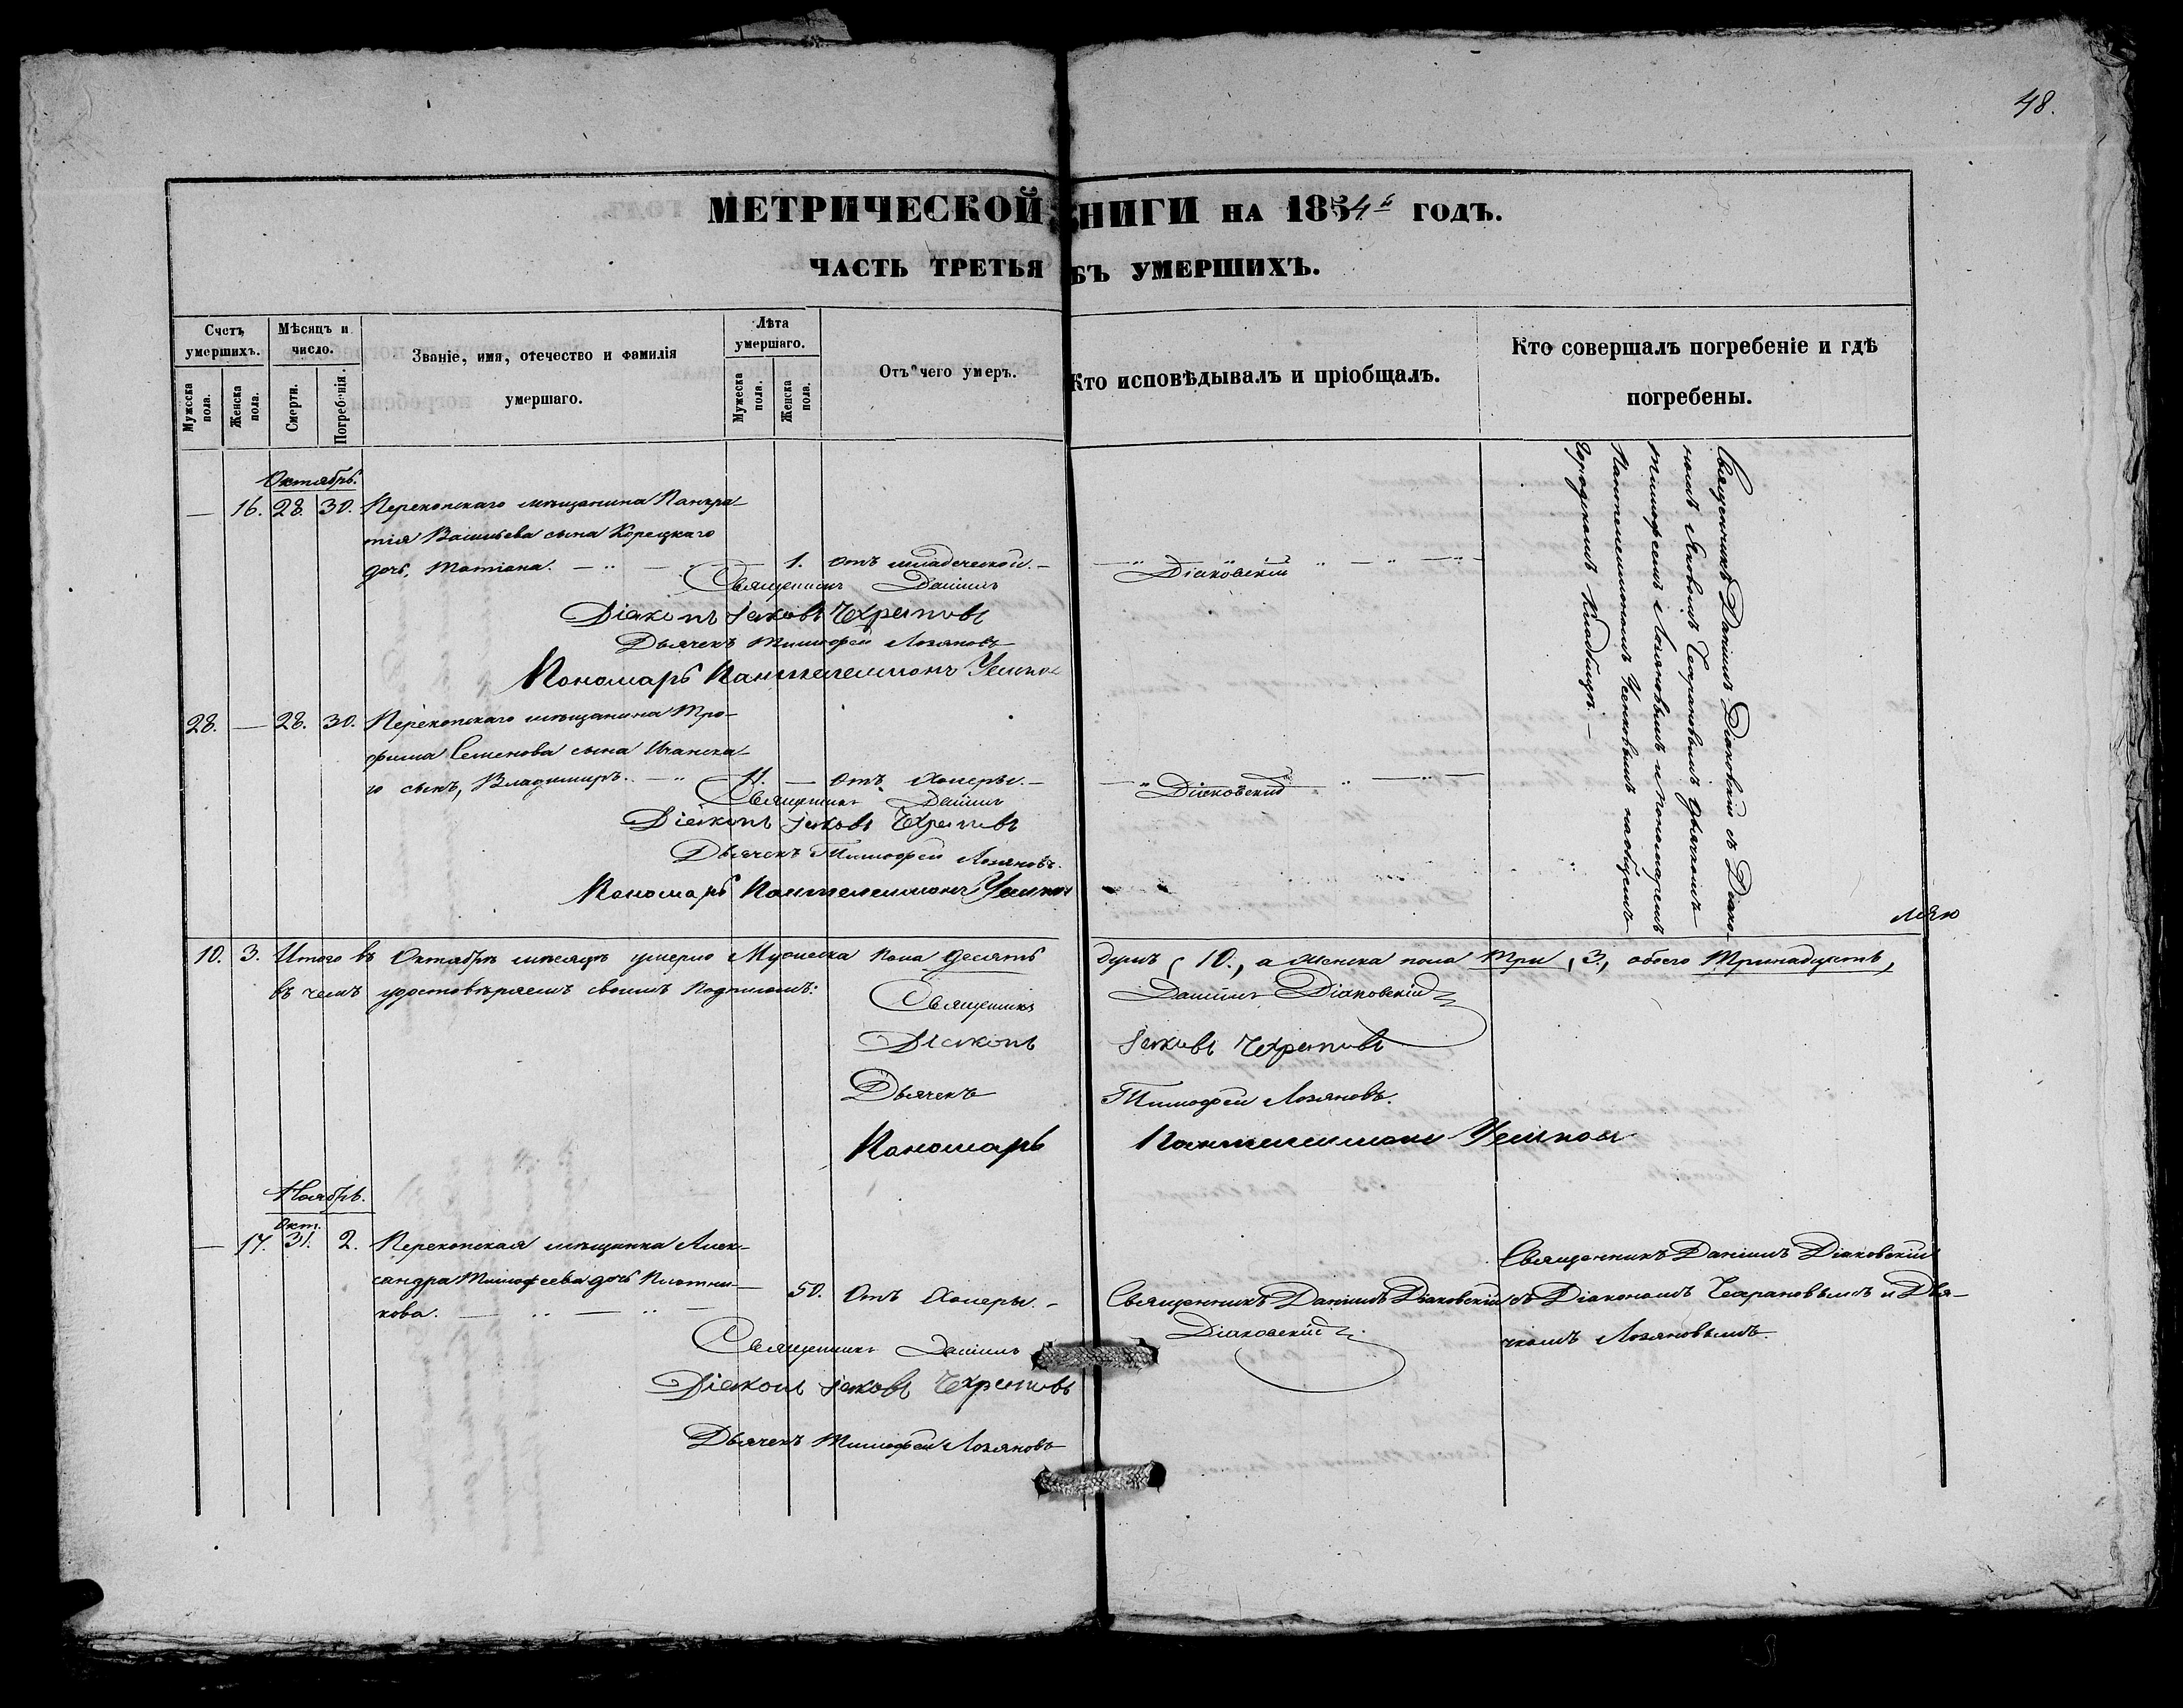 48.
МЕТРИЧЕСКОЙ КНИГИ НА 1854й ГОДЪ.
ЧАСТЬ ТРЕТЬЯ ОБЪ УМЕРШИХЪ.
Счетъ умершихъ.
Мужеска пола.
Женска пола.
Мѣсяцъ и число.
Смерти.
Погребенія.
Званіе, имя, отечество и фамилія
умершаго.
Лѣта умершаго.
Мужеска пола.
Женска пола.
Отъ чего умеръ.
Кто исповѣдывалъ и пріобщалъ.
Кто совершалъ погребеніе и гдѣ
погребены.
Октябрь.
— 16. 28. 30. Перекопскаго мѣщанина Панкра-
тія Васильева сына Корецкаго
дочь, Татіана. — 1. Отъ младеческой. —
Священникъ Даніилъ Діаковскій
Діаконъ Іаковъ
Дьячекъ Тимофей Лозяновъ
Пономарь Пантелеимонъ
28. — 28. 30. Перекопскаго мѣщанина Тро-
фима Семенова сына
го сынъ, Владимиръ. — 11. — Отъ Холеры. —
Священникъ Даніилъ Діаковскій
Діаконъ Іаковъ
Дьячекъ Тимофей Лозяновъ.
Пономарь Пантелеимонъ
Священникъ Даніилъ Діаковскій съ Діако-
номъ Яковомъ дьячкомъ
Тимофеемъ Лозяновымъ и пономаремъ
Пантелеимономъ на общемъ
городскомъ кладбищѣ. —
10. 3. Итого въ Октябрѣ мѣсяцѣ умерло Мужеска пола десять душъ, 10., а женска пола три, 3., обоего тринадцать,
въ чемъ удостовѣряемъ своимъ подписомъ:
Священникъ Даніилъ Діаковскій
Діаконъ Іаковъ
Дьячекъ Тимофей Лозяновъ.
Пономарь Пантелеимонъ
Ноябрь.
Окт.
— 17. 31. 2. Перекопская мѣщанка Алек-
сандра Тимофеева дочь Плотни-
кова. — 50. Отъ Холеры. —
Священникъ Даніилъ Діаковскій
Священникъ Даніилъ Діаковскій
съ Діакономъ и Дья-
чкомъ Лозяновымъ.
Священникъ Даніилъ Діаковскій
Діаконъ Іаковъ
Дьячекъ Тимофей Лозяновъ